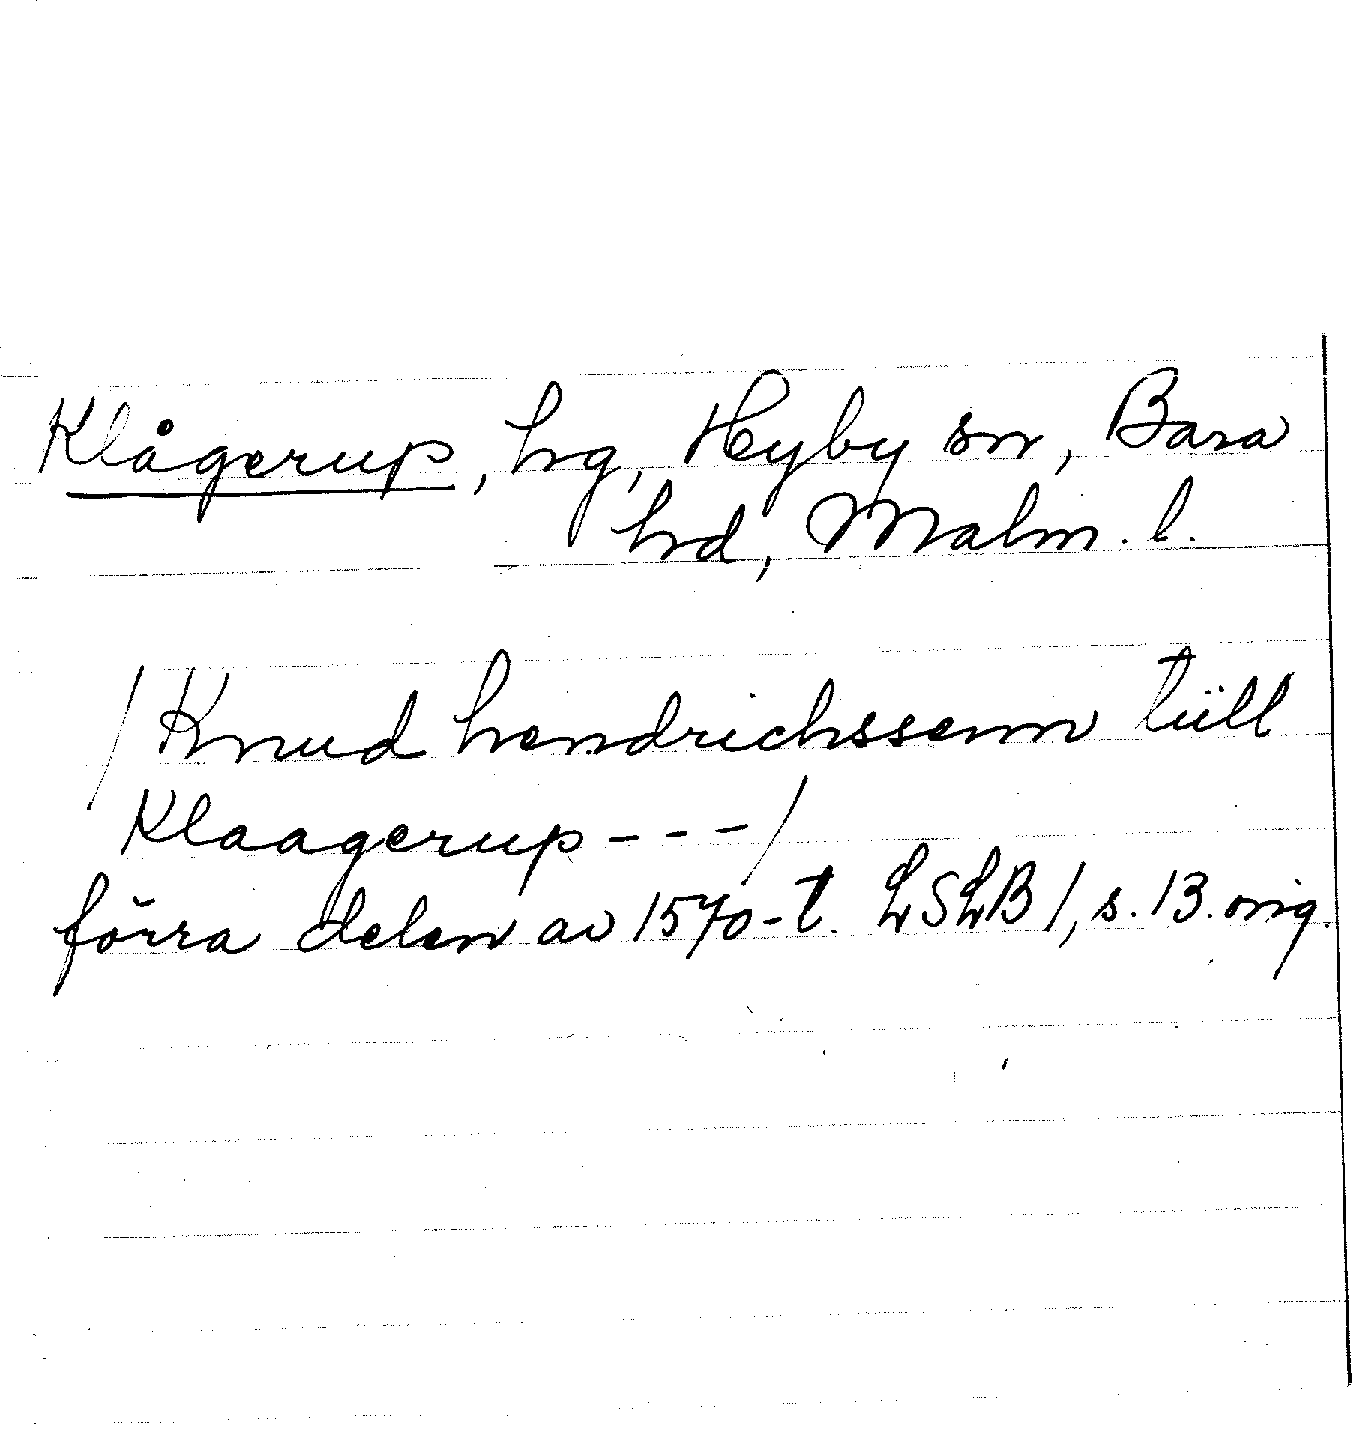 Klågerup, hrg, Hyby sn, Bara
hrd, Malm. l.
/Knud hendrichssenn tüll
Klaagerup - - -/
förra delen av 1570-t. LSLB 1, s. 13. orig.